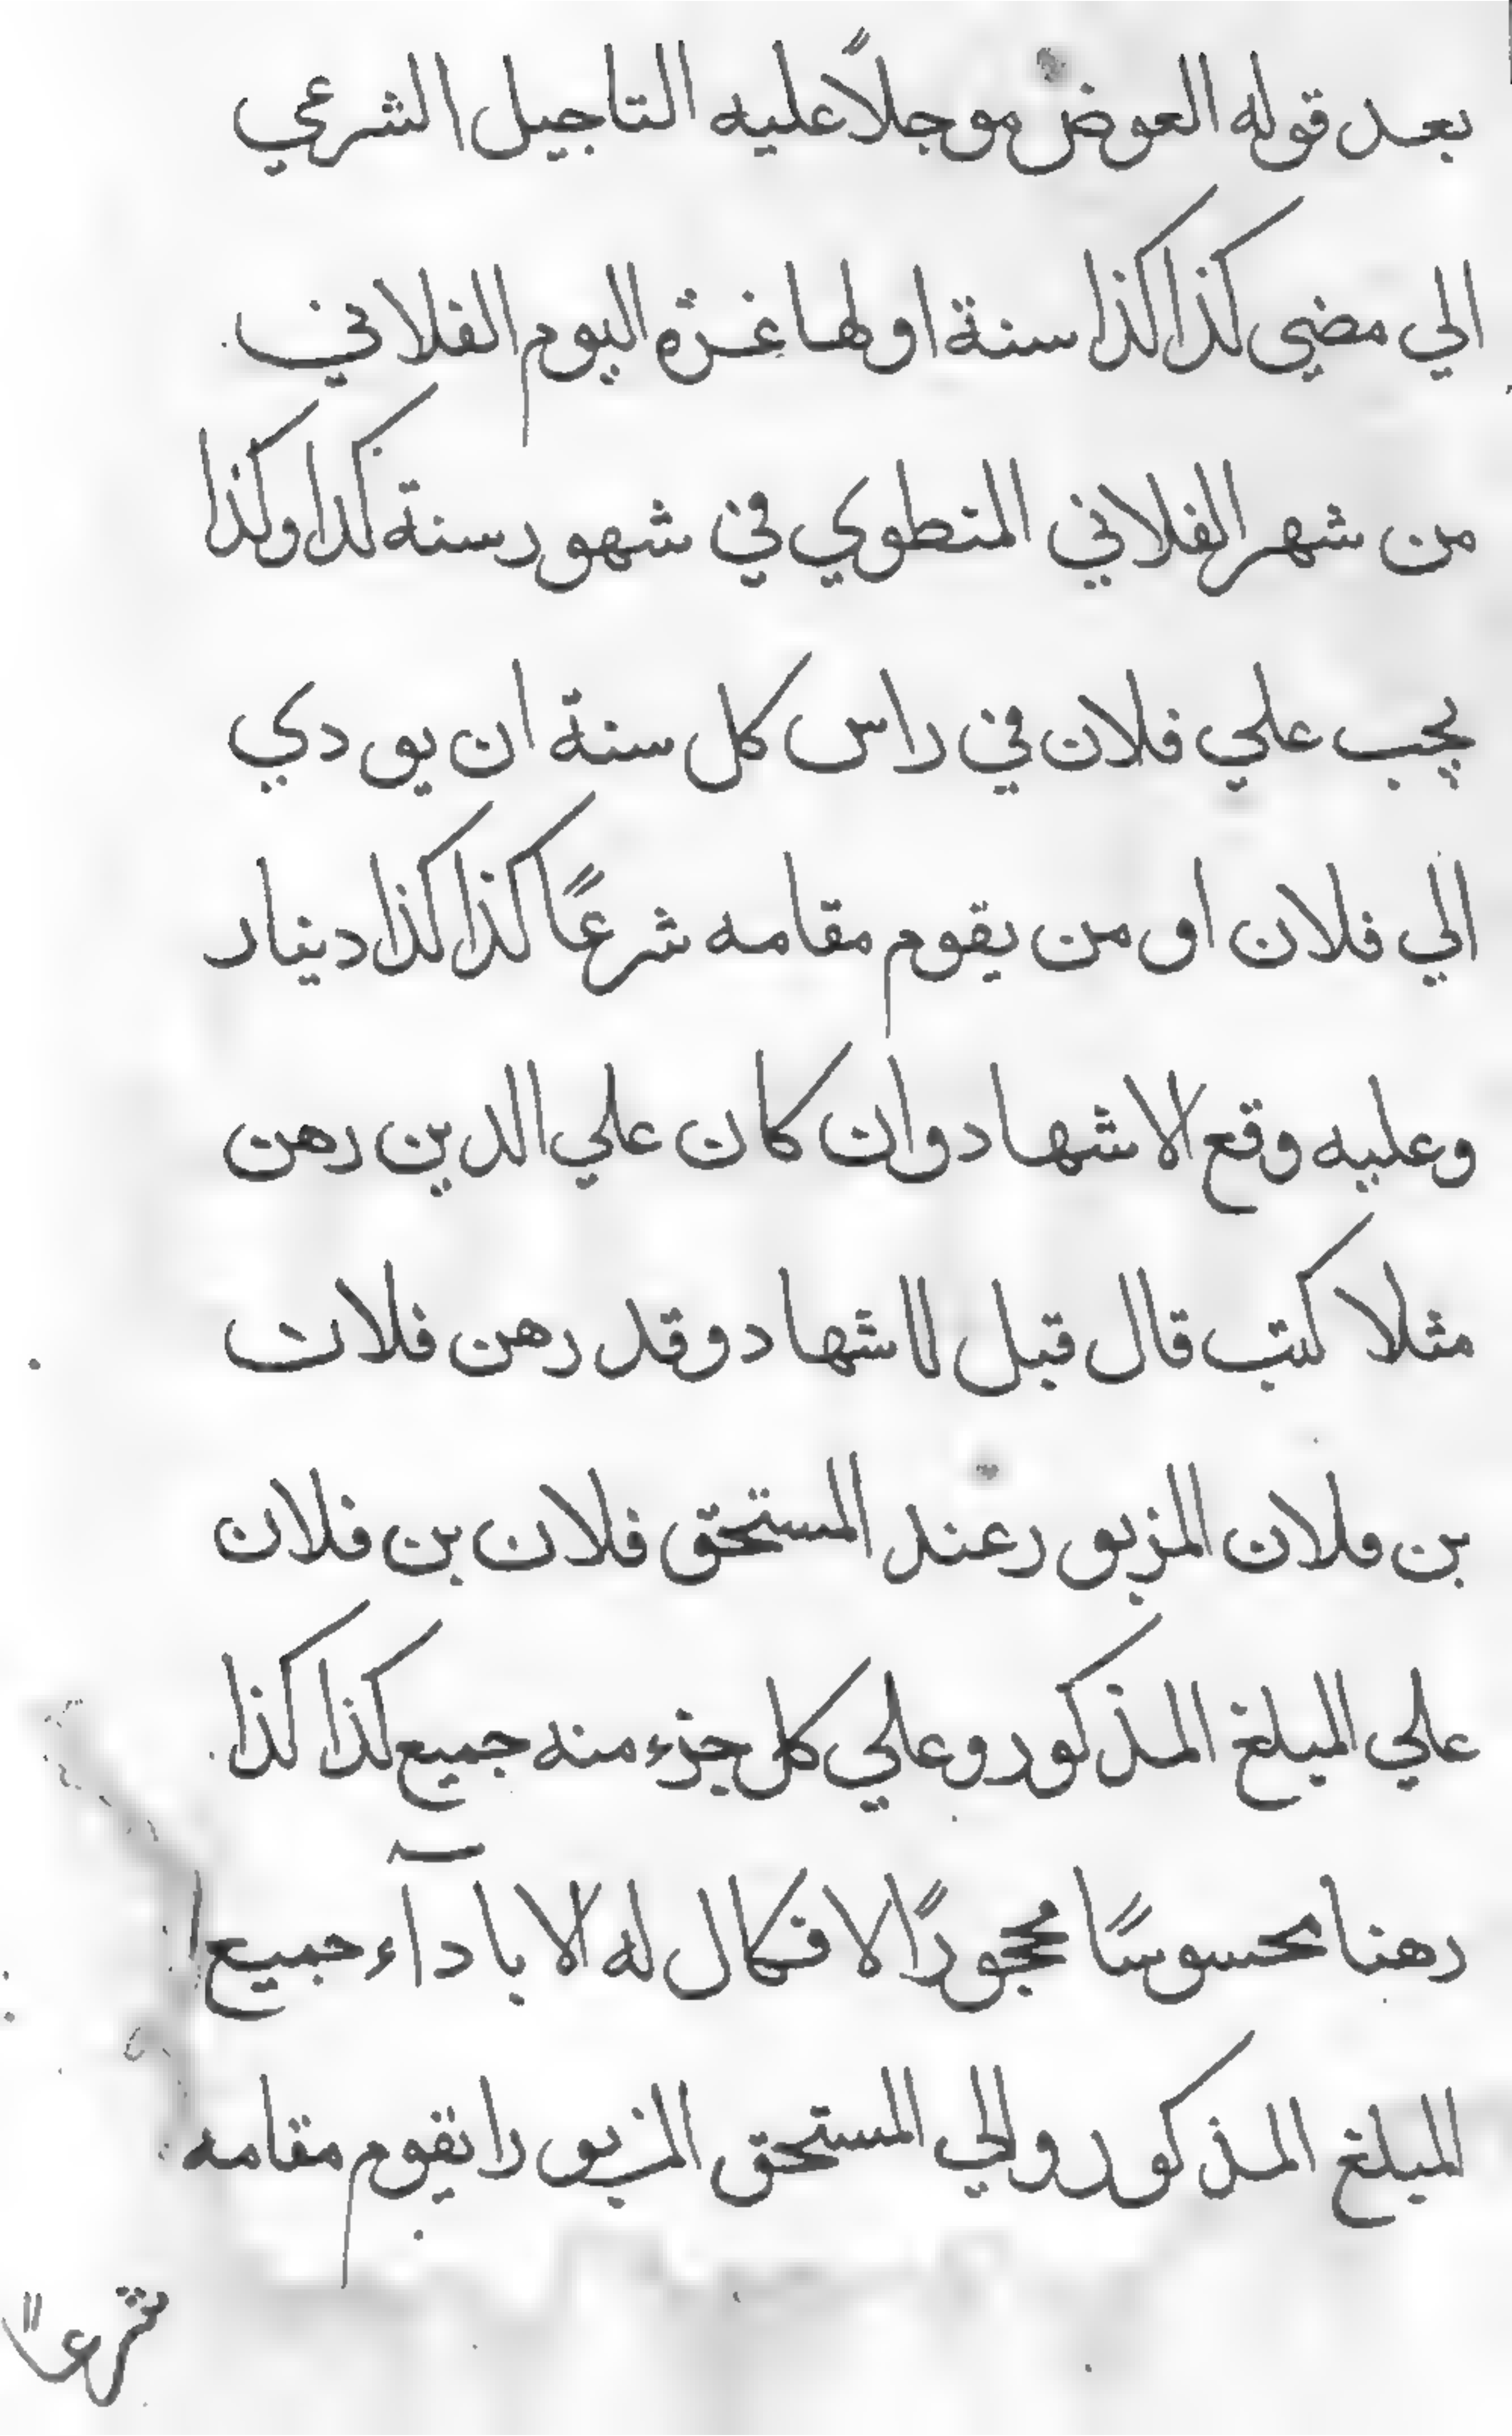 بعد قوله العوض موجلاً عليه التاجيل الشرعي
الي مضي كذا كذا سنة اولها غرة اليوم الفلاني
من شهر الفلاني المنطوي في شهور سنة كدا وكذا
يجب علي فلان في راس كل سنة ان يودي
الي فلان او من يقوم مقامه شرعًا كذا كذا دينار
وعليه وقع الاشهاد وان كان علي الدين رهن
مثلا كتب قال قبل الاشهاد وقد رهن فلان
بن فلان المزبور عند المستحق فلان بن فلان
علي المبلغ المذكور وعلي كل جزء منه جميع كذا كذا
رهنا محسوسًا محجورًا لا فكال له الا باداآء جميع
المبلغ المذكور والي المستحق المزبور را يقوم مقامه
شرعاً